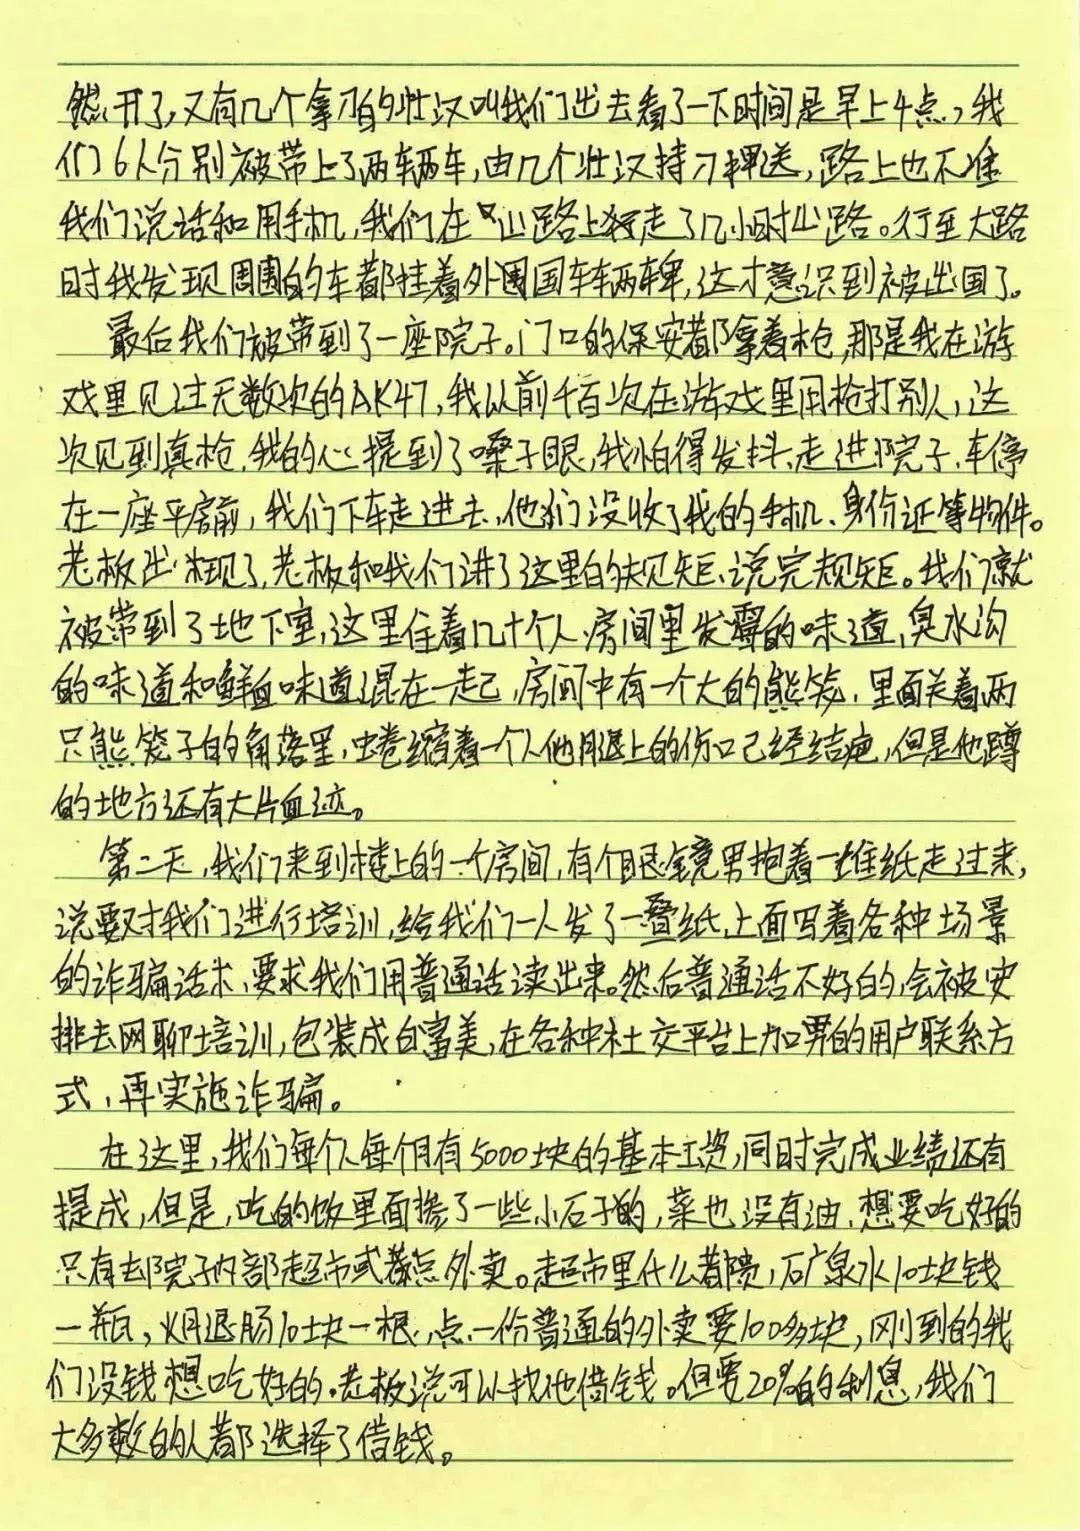 然开了,又有几个拿刀的壮汉叫我们出去看了一下时间是早上4点,我
们6人分别被带上了两辆车,由几个壮汉持刀押送,路上也不准
我们说话和用手机,我们在山路上行走了几小时山路。行至大路
时我发现周围的车都挂着外国车辆牌,这才意识到被出国了。
最后我们被带到了一座院子。门口的保安都拿着枪,那是我在游
戏里见过无数次的AK47,我以前千百次在游戏里用枪打别人,这
次见到真枪,我的心提到了嗓子眼,我怕得发抖,走进院子,车停
在一座平房前,我们下车走进去,他们没收了我的手机、身份证等物件。
老板出现了,老板和我们讲了这里的规矩、说完规矩。我们就
被带到了地下室,这里住着几十个人,房间里发霉的味道,臭水沟
的味道和鲜血味道混在一起,房间中有一个大的熊笼,里面关着两
只熊笼子的角落里,蜷缩着一个人他腿上的伤口已经结疤,但是他蹲
的地方还有大片血迹。
第二天,我们来到楼上的一个房间,有个眼镜男抱着一堆纸走过来,
说要对我们进行培训,给我们一人发了一叠纸,上面写着各种场景
的诈骗话术,要求我们用普通话读出来。然后普通话不好的,会被安
排去网聊培训,包装成白富美,在各种社交平台上加男的用户联系方
式,再实施诈骗。
在这里,我们每个人每个月有5000块的基本工资,同时完成业绩还有
提成,但是,吃的饭里面掺了一些小石子的,菜也没有油,想要吃好的
只有去院子内部超市或者点外卖。超市里什么都贵,矿泉水10块钱
一瓶,火腿肠10块一根,点一份普通的外卖要100多块,刚到的我
们没钱想吃好的。老板说可以找他借钱。但要20%的利息,我们
大多数的人都选择了借钱。